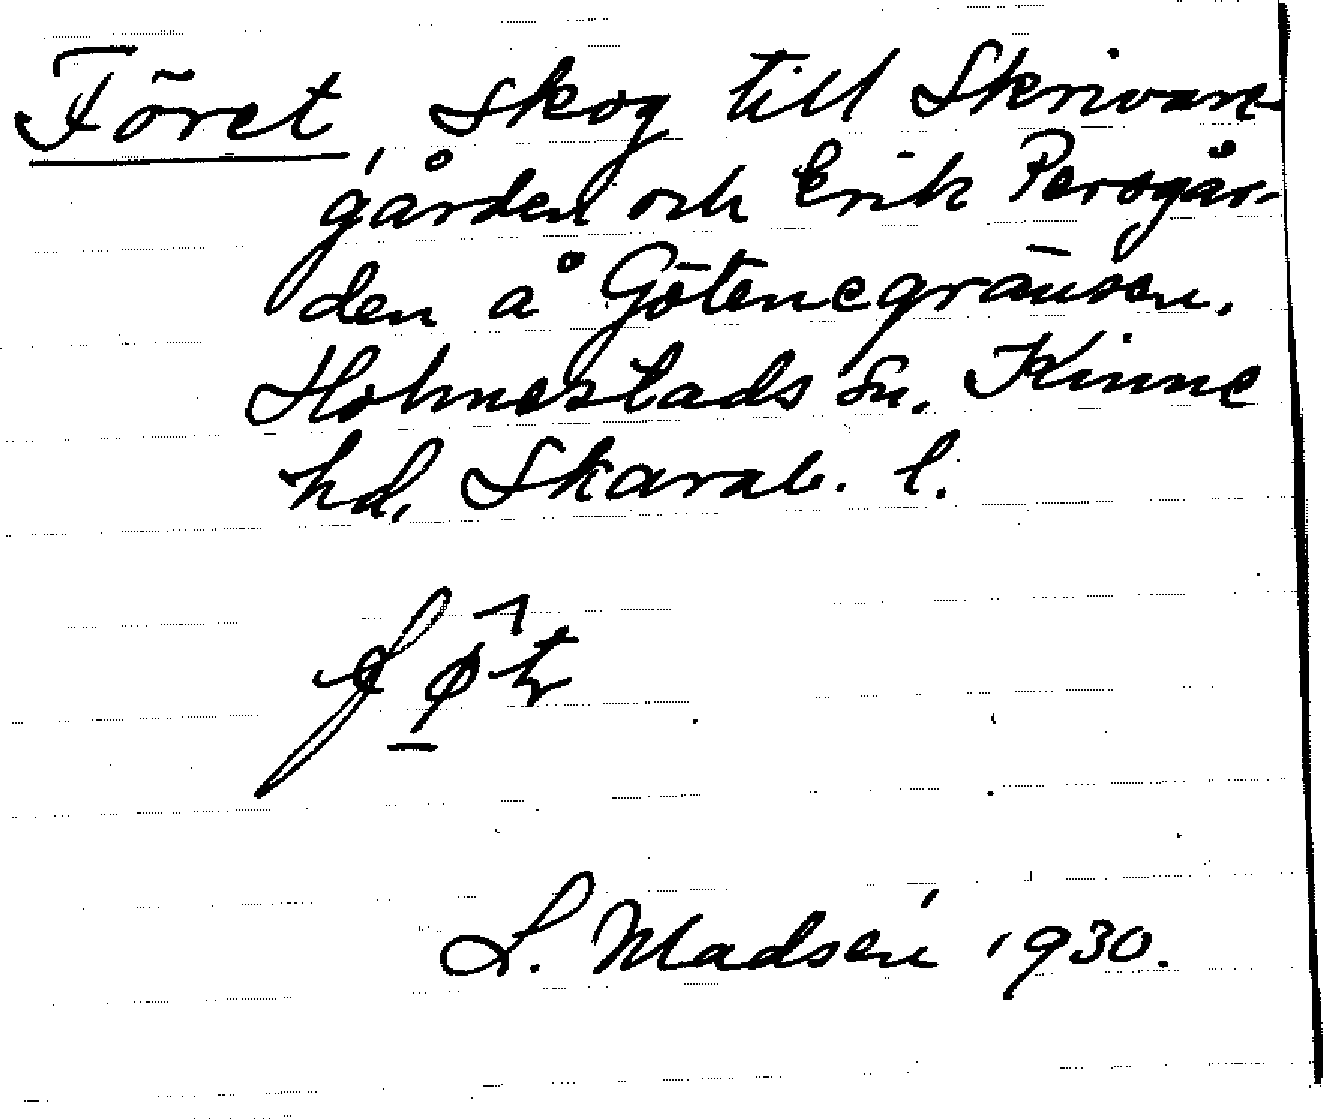 Föret, skog till Skrivare-
gården och Erik Persgår-
den å Götenegränsen.
Holmestads sn. Kinne
hd. Skarab. l.
L. Madsén 1930.